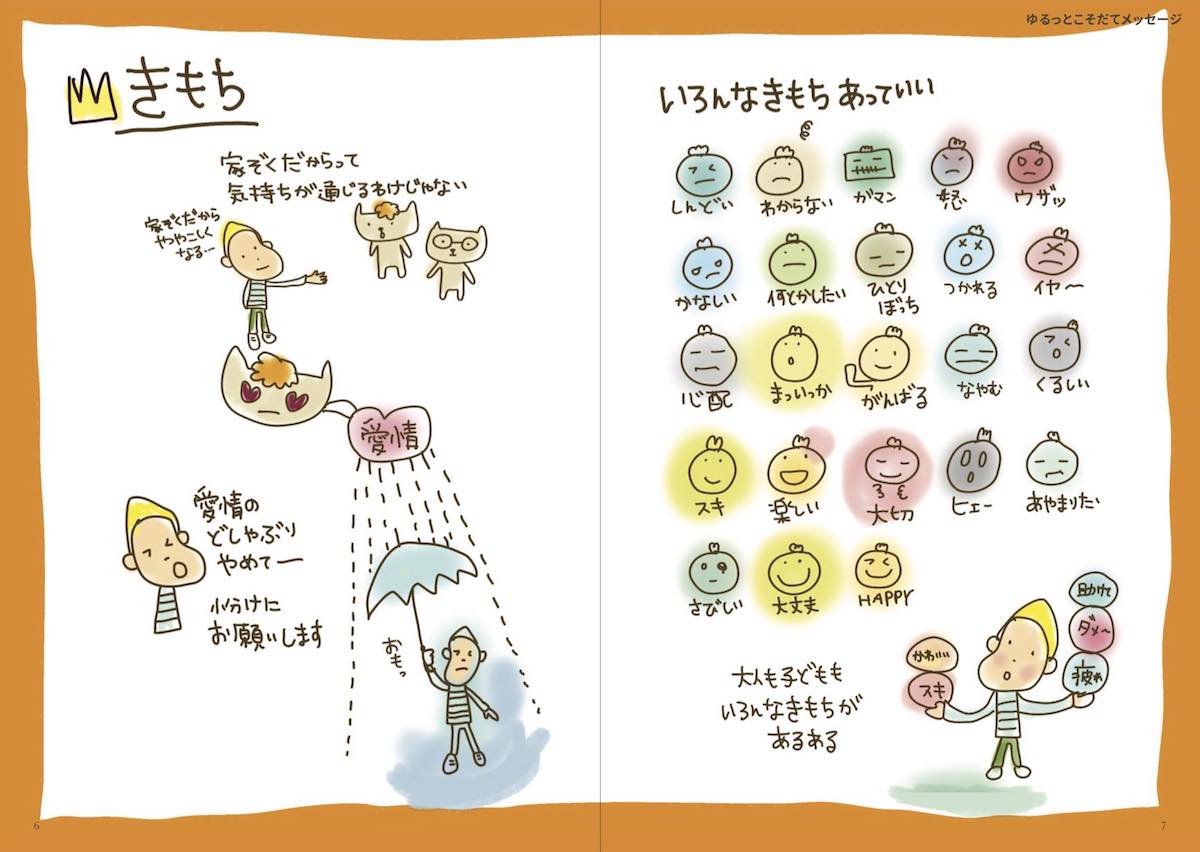 ゆるっとこそだてメッセージ
きもち
家ぞくだからって
気持ちが通じるわけじゃない
家ぞくだから
ややこしく
なる…
愛情
愛情の
どしゃぶり
やめてー
小分けに
お願いします
おもっ
6
いろんなきもち あっていい
しんどい
わからない
ガマン
怒
ウザッ
かなしい
何とかしたい
ひとり
ぼっち
つかれる
イヤ〜
心配
まっいっか
がんばる
なやむ
くるしい
スキ
楽しい
大切
ヒェー
あやまりたい
さびしい
大丈夫
HAPPY
大人も子どもも
いろんなきもちが
あるある
かわいい
スキ
助けて
ダメ〜
疲れ
7